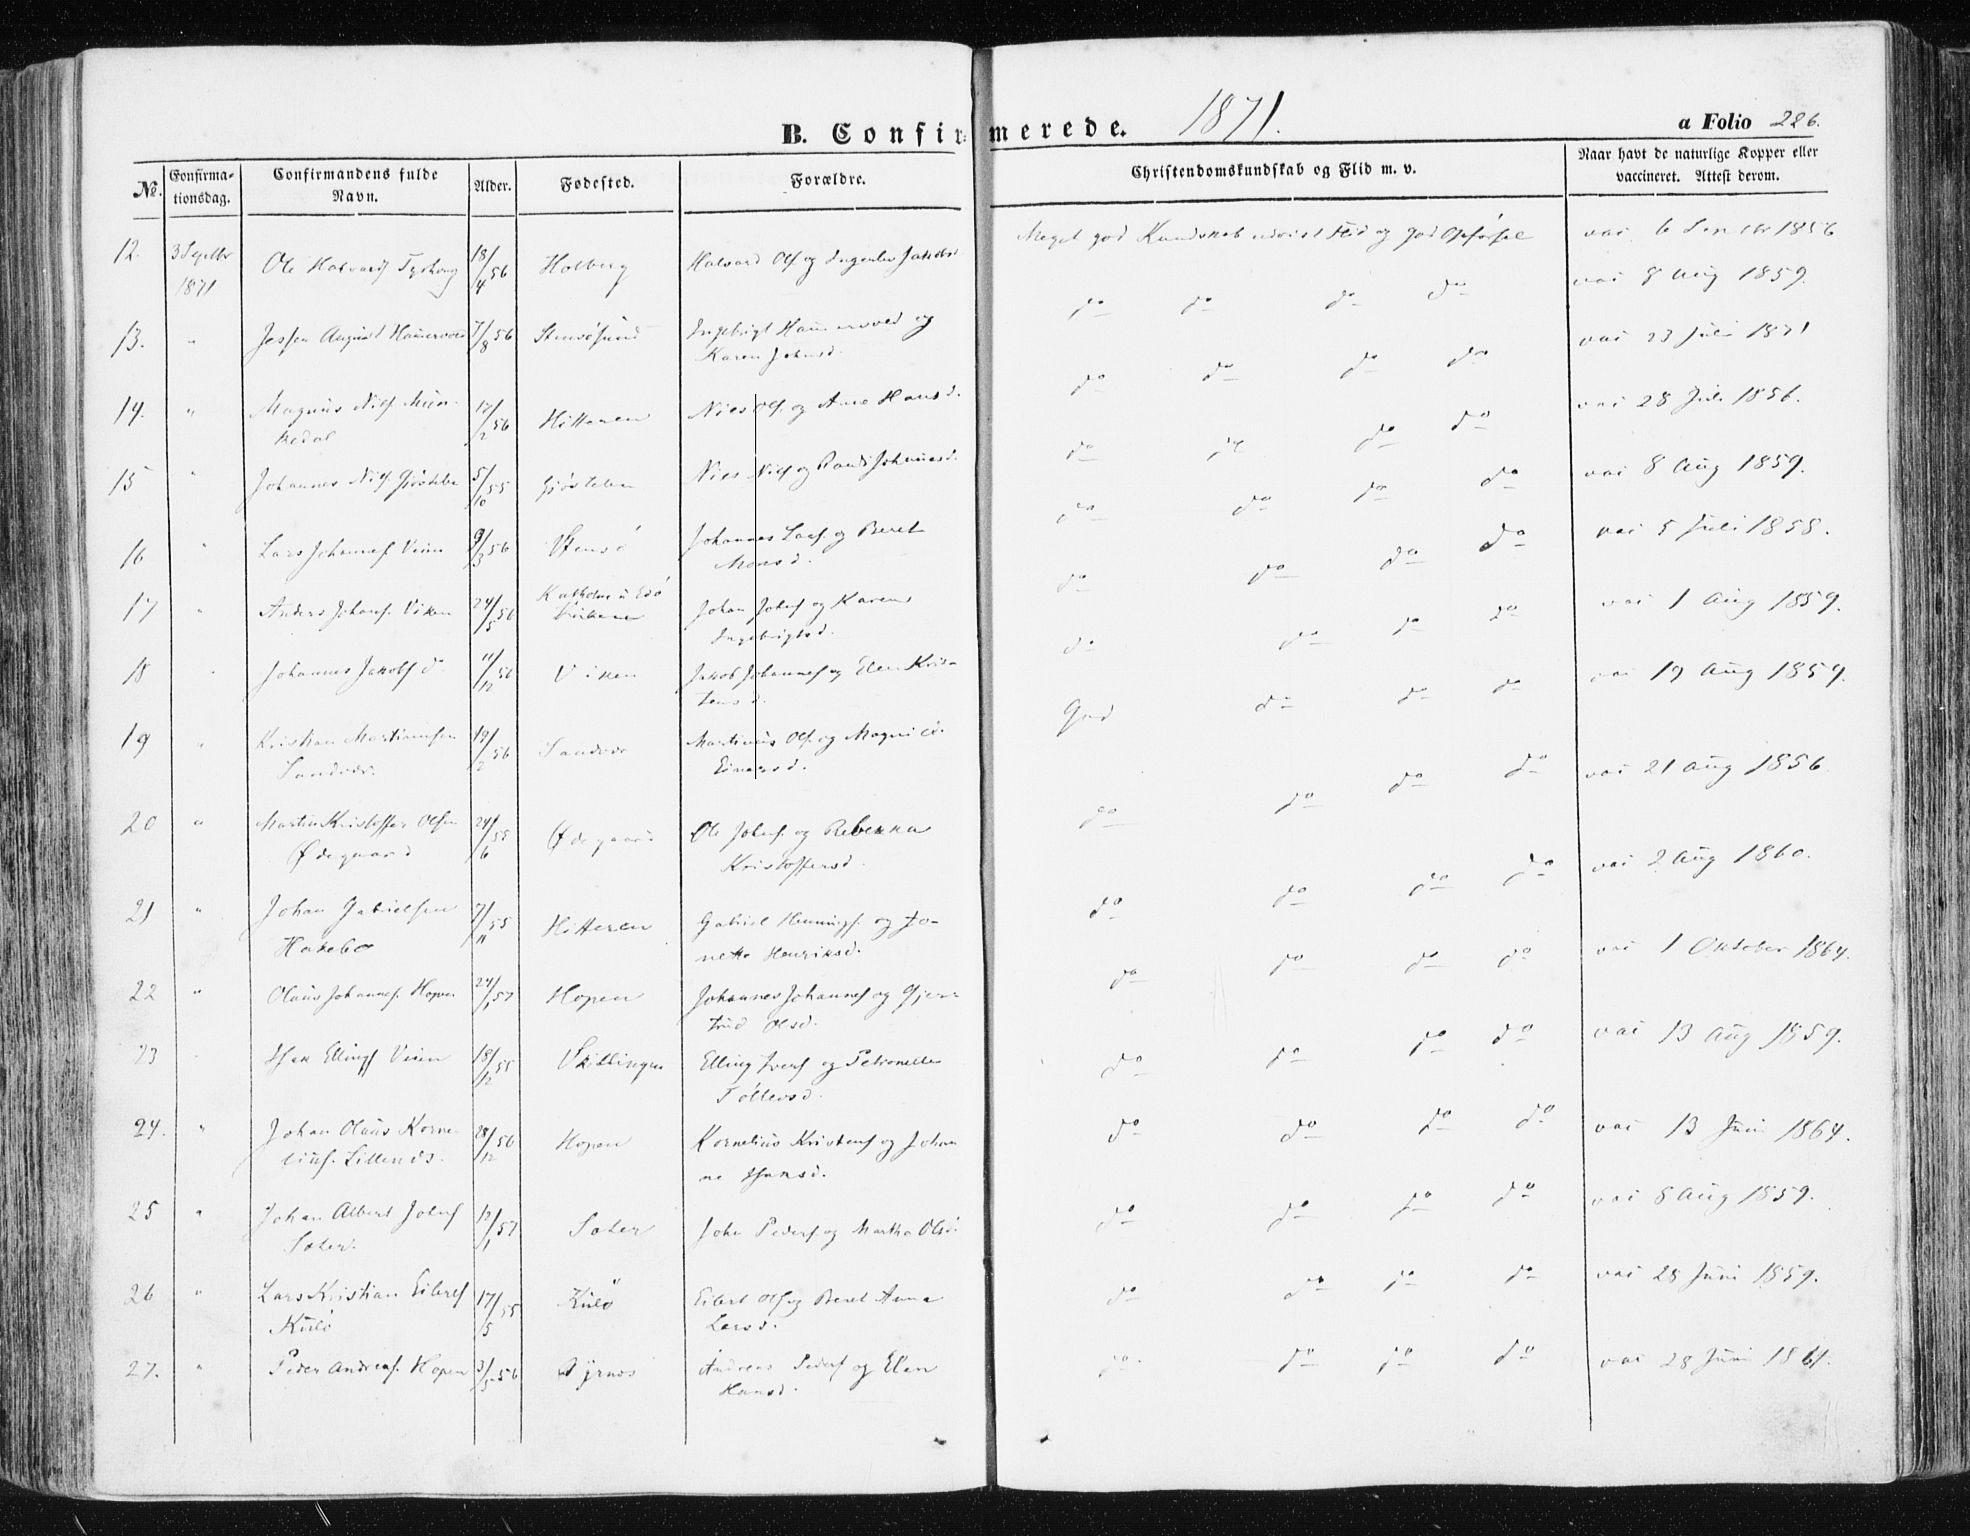 B. Confirmerede. 1871. a Folio 226.
No. Confirmationsdag. Confirmandens fulde Navn. Alder. Fødested. Forældre. Christendomskundskab og Flid m. v. Naar havt de naturlige Kopper eller vaccineret. Attest derom.
12. 3 Septbr 1871 Ole Halvards 18/4 56 Holberg Halvard Ols. og Ingeborg Jakobsd. Meget god Kundskab udvist Flid og god Opførsel vac 1856
vac 8 Aug 1859.
13. " August 7/8 56 Ingebrigt og
Karen Johnsd. do do do do vac 23 Juli 1871
14. " Magnus Nils. 17/2 56 Hitteren Niels Ols. og Ane Hansd. do do do do vac 28 Juli 1856.
15 " Johannes Nils. 5/10 55 Niels Nils. og Randi Johannesd. do do do vac 8 Aug 1859.
16 " Lars Johannes. Veien 9/3 56 Stensø Johannes Lars. og Beret
Monsd. do do do do vac 5 Juli 1858.
17 " Anders Johans. Viken 24/5 56 Johan Johns. og Karen
Ingebrigtsd. do do do do vac 1 Aug 1859.
18 " Johannes Jakobs. do 11/12 56 Viken Jakob Johannes. og Elen Kris-
tensd. do do do do vac 19 Aug 1859.
19 " Kristian Martinusen
Sandvær. 19/2 56 Sandvær Martinus Ols. og
Einarsd. God do do do vac 21 Aug 1856
20 " Martin Kristoffer Olsen
Ødegaard 24/6 55 Ødegaard Ole Johns. og Rebekka
Kristoffersd. do do do do vac 2 Aug 1860.
21 " Johan Gabrielsen
Hakebo 7/11 55 Hitteren Gabriel Hennings. og Jo-
netta Henriksd. do do do do vac 1 Oktober 1864.
22 " Olaus Johannes. Hopen 24/1 57 Hopen Johannes Johannes. og Gjer-
trud Olsd. do do do do vac 13 Aug 1859.
23 Ellings. Veien 18/12 55 Skillingen Elling Ivers. og Petronelle
Tollevsd. do do do do
24. " Johan Olaus Korne-
lius. 28/12 56 Hopen Kornelius Kristens. og Johan-
na do do do do vac 13 Juni 1864.
25 " Johan Albert Johns.
Sæter. 12/1 57 Sæter John Peders. og Martha Olsd. do do do do vac 8 Aug 1859.
26 " Lars Kristian Eilerts.
Kulø 17/5 55 Kulø Eilert Ols. og Beret Anna
Larsd. do do do do vac 28 Juni 1859.
27. " Peder Andreas. Hopen 3/3 56 Dyrnes Andreas Peders. og Elen
Hansd. do do do do vac 28 Juni 1861.